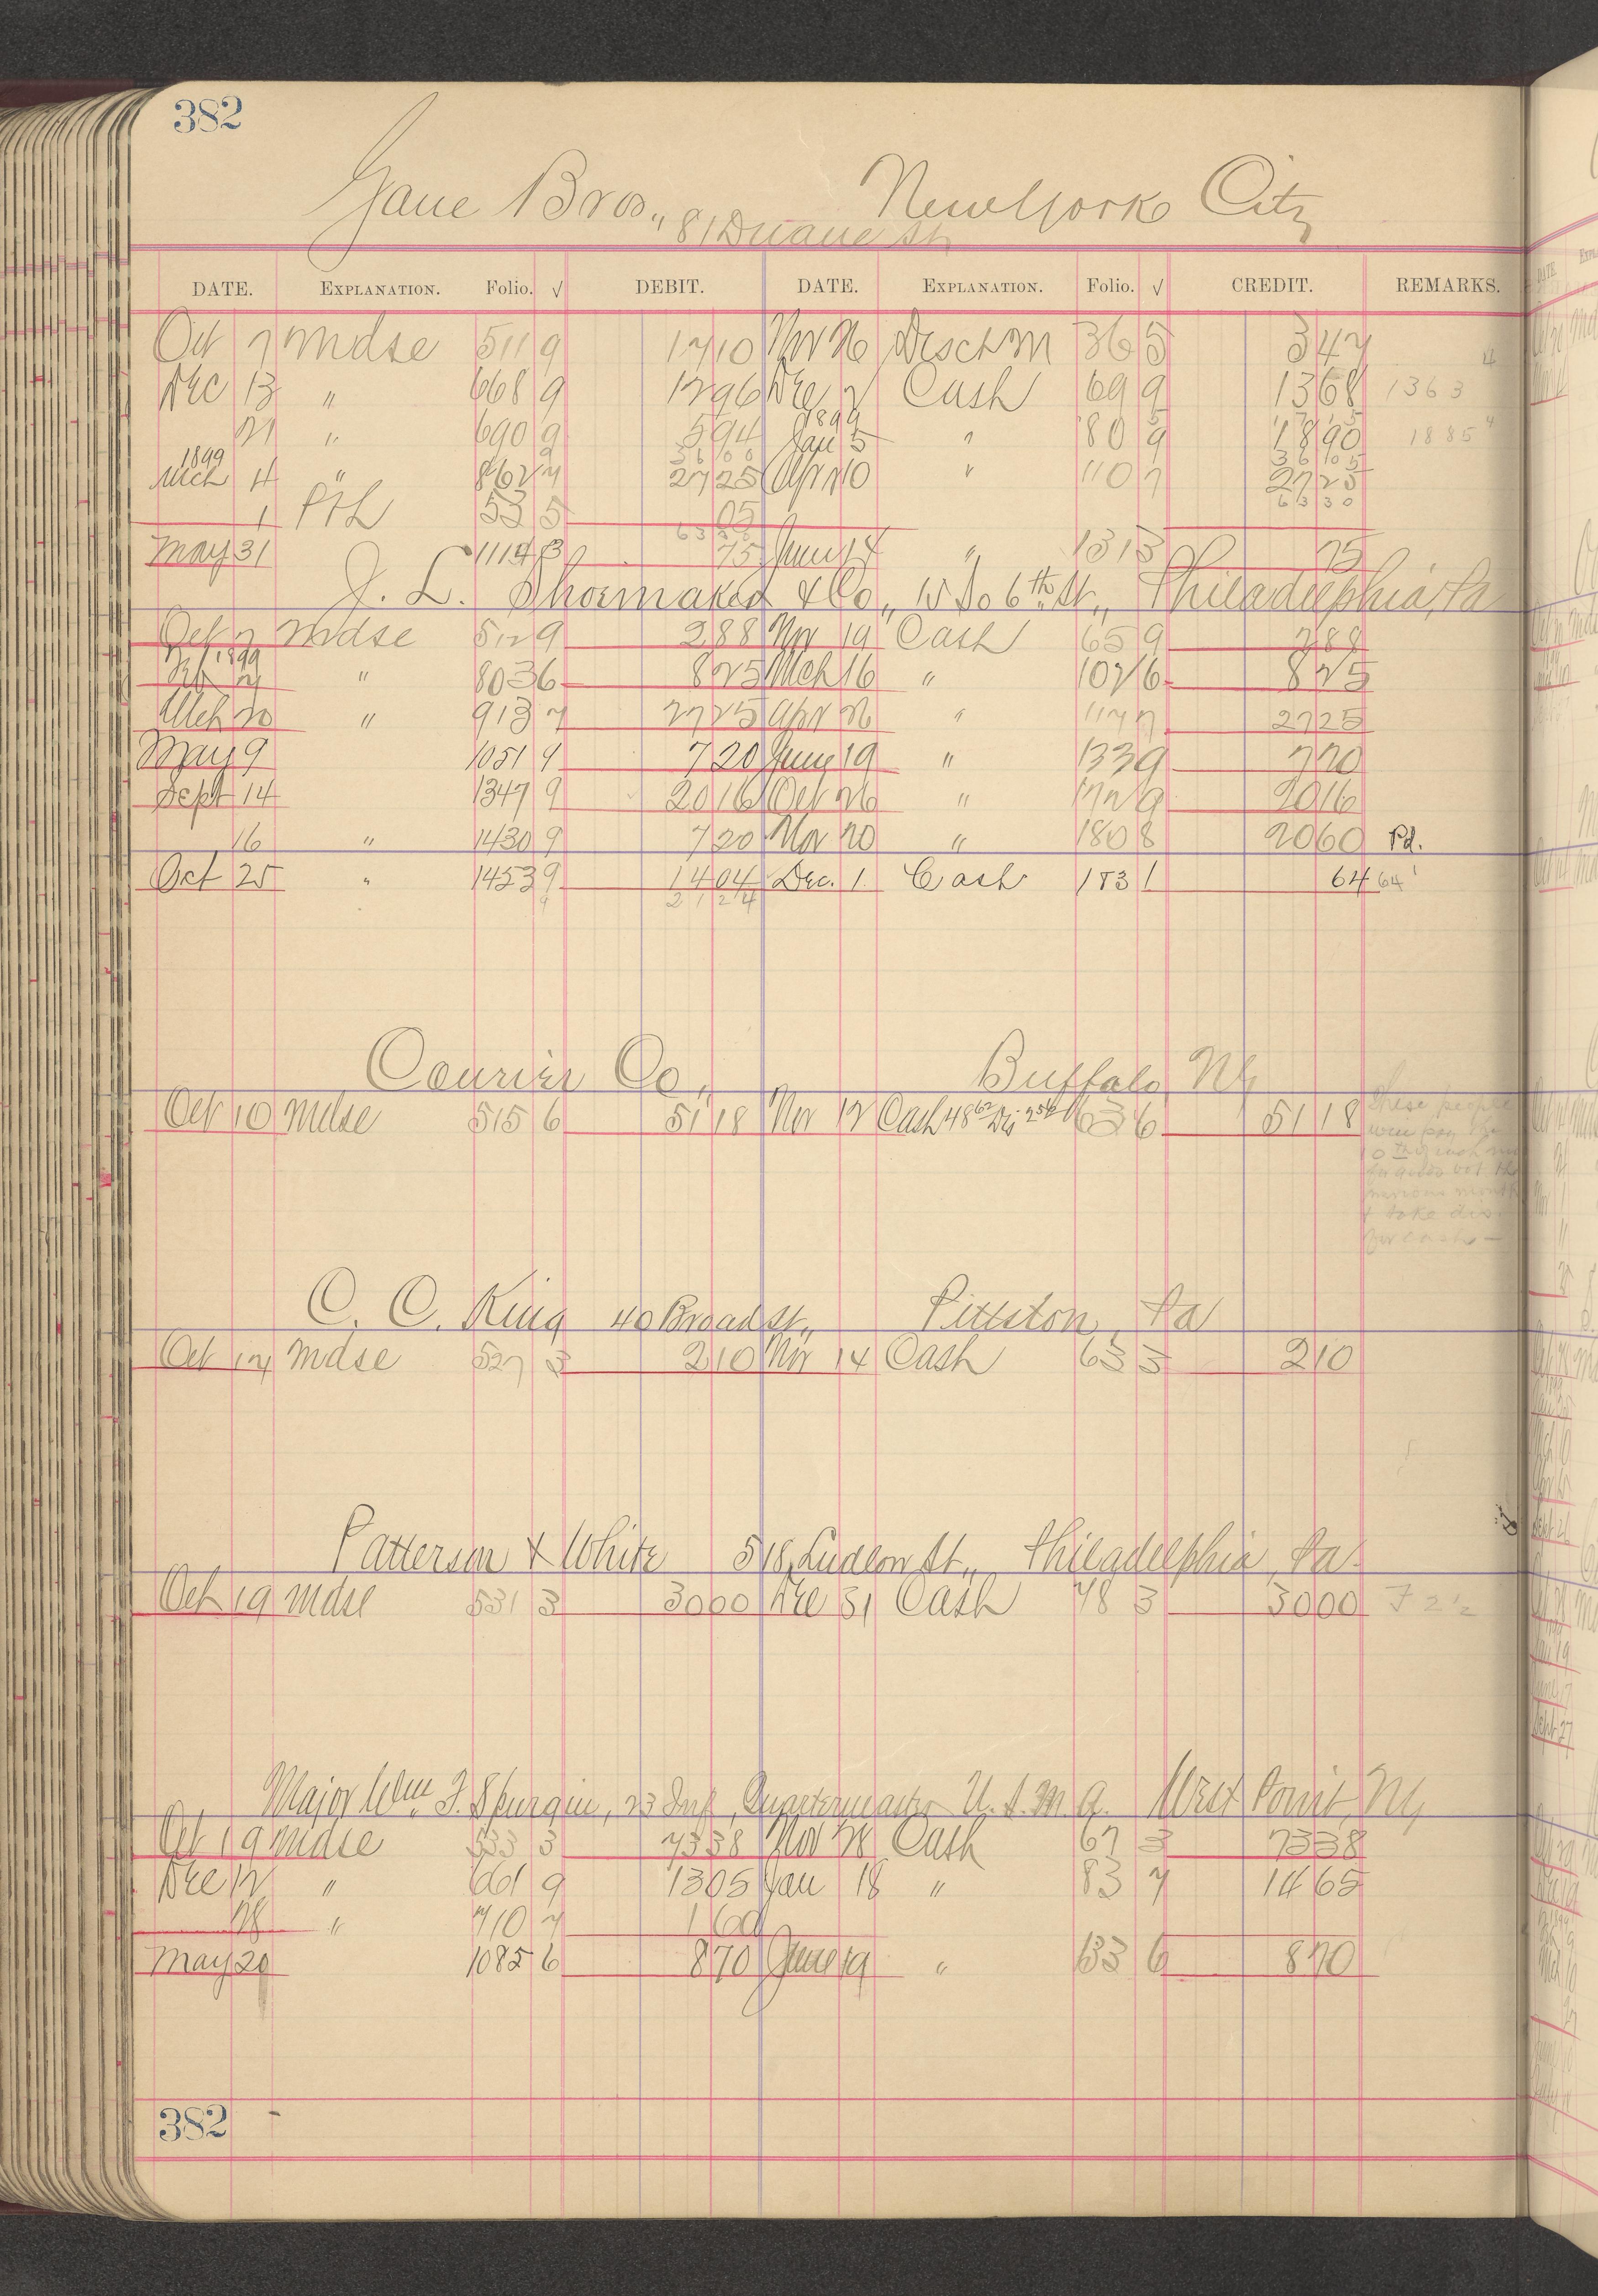 382
Gane Bros., 81 Duane St. New York City
DATE. EXPLANATION. Folio. √ DEBIT. DATE. EXPLANATION. Folio. √ CREDIT. REMARKS.
Oct 7 Mdse 511 9 17 10 Nov 26 36 5 3 42
Dec 13 " 668 9 12 96 Dec 2 Cash 69 9 13 68 1363
21 " 690 9 5 94 1899 Jan 5 " 80 9 18 90 1885
1899 Mch 4 " 862 7 27 25 Apr 10 " 110 7 27 25
36 00 36 05
1 53 5 05
63 30 63 30
May 31 1114 3 75 June 14 " 131 3 75
J. L. Shoemaker & Co., 15 So 6th St., Philadelphia, Pa
Oct 7 Mdse 512 9 2 88 Nov 19 Cash 65 9 2 88
1899 " 803 6 8 25 Mch 16 " 102 6 8 25
Mch 20 " 913 7 27 25 Apr 26 " 117 7 27 25
May 9 1051 9 7 20 June 19 " 133 9 7 20
Sept 14 1347 9 20 16 Oct 26 " 172 9 20 16
16 " 1430 9 7 20 Nov 20 " 180 8 20 60 Pd.
Oct 25 " 1453 9 14 04 Dec. 1 Cash 183 1 64 64
21 24
Courier Co., Buffalo, NY
Oct 10 Mdse 515 6 51 18 Nov 12 Cash 48 62 Dis 2 56 63 6 51 18 These people
will pay the
10th of each mo
for goods bot the
previous month
& take dis.
for cash—
C. C. King 40 Broad St., Pittston, Pa
Oct 17 Mdse 527 3 2 10 Nov 14 Cash 63 3 2 10
Patterson & White 518 Ludlow St., Philadelphia, Pa.
Oct 19 Mdse 531 3 30 00 Dec 31 Cash 78 3 30 00 F 2 1/2
Major Wm. F. Spurgin, 23 Inf, Quartermaster U.S.M.A. West Point, NY
Oct 19 Mdse 533 3 73 38 Nov 28 Cash 67 3 73 38
Dec 12 " 661 9 13 05 Jan 18 " 83 7 14 65
28 " 710 7 1 60
May 20 1085 6 8 70 June 19 " 133 6 8 70
382